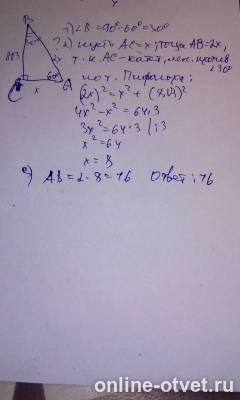 B
8√3
2x
60°
x
1) ∠B = 90° - 60° = 30°
2) пусть AC = x, тогда AB = 2x,
т.к. AC - катет, леж. против ∠30°
по т. Пифагора:
(2x)² = x² + (8√3)²
4x² - x² = 64·3
3x² = 64·3 |:3
x² = 64
x = 8
AB = 2·8 = 16 Ответ: 16
online-otvet.ru